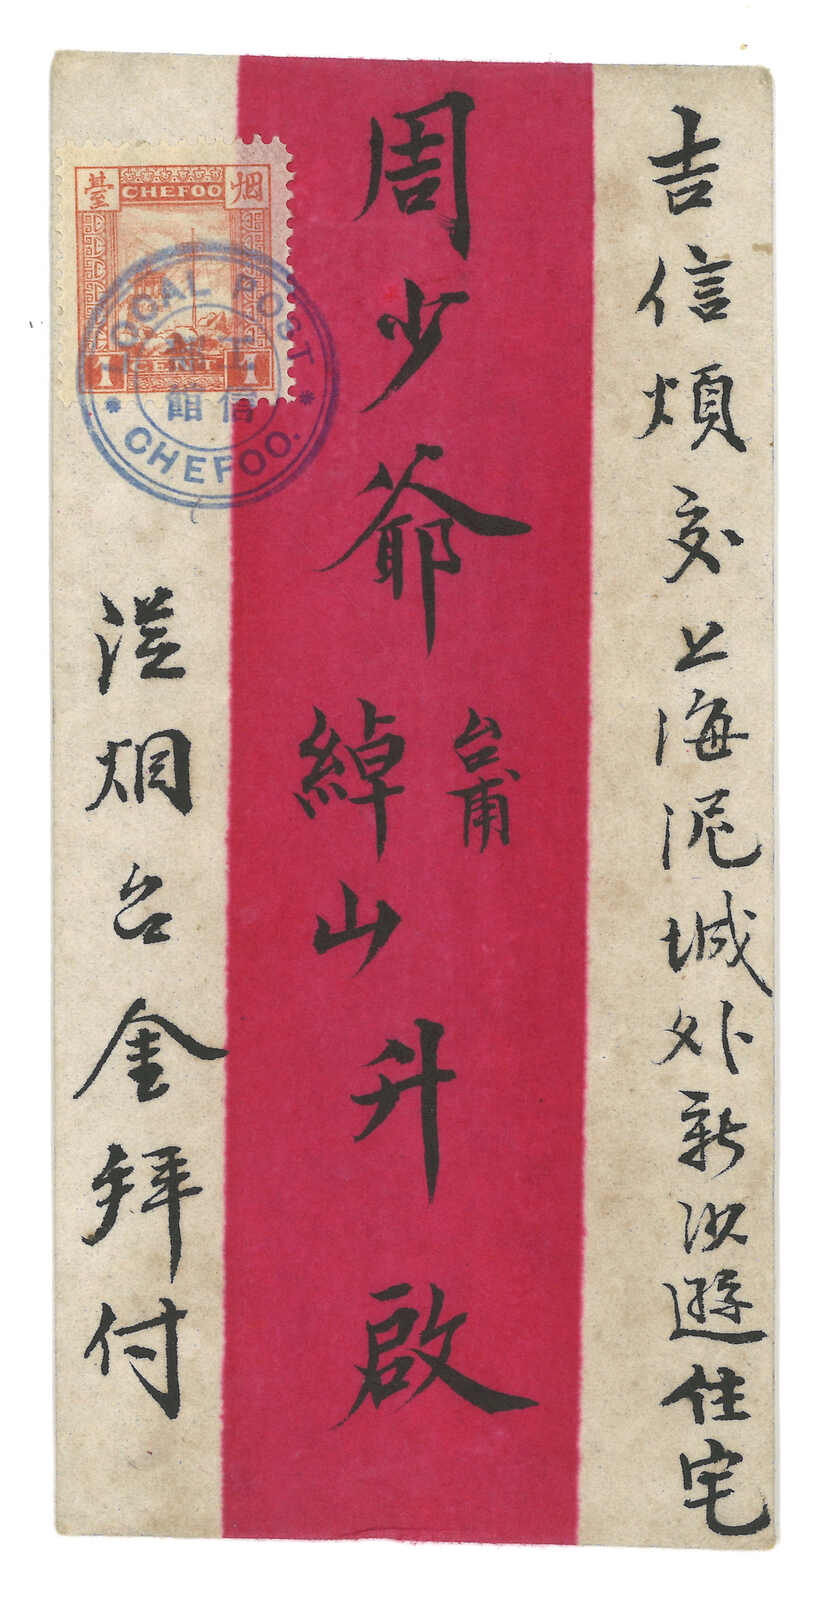 吉信煩交上海泥城外新沙遜住宅
周少爺
台甫
綽山升啟
從烟台金拜付
烟臺
CHEFOO
1 CENT 1
LOCAL POST
工部
信館
CHEFOO.